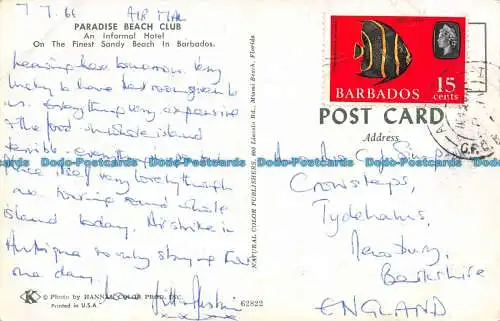 7.7.66 AIR MAIL
PARADISE BEACH CLUB
An Informal Hotel
On The Finest Sandy Beach In Barbados.
leaving here tomorrow. Very
lucky to have been given to
us. Everything very expensive
& the food on whole island
terrible. everything
place itself very lovely though
touring round whole
island today. Air strike in
Antigua so only staying there
one day.
© Photo by HANNAU COLOR PROD. INC.
Printed in U.S.A
62822
NATURAL COLOR PUBLISHERS, Lincoln Rd., Miami Beach, Florida.
BARBADOS 15 cents
POST CARD
Address
Simpson
Crowsteps,
Tydehams,
Newbury,
Berkshire
ENGLAND
G.P.O.
Dodo-Postcards Dodo-Postcards Dodo-Postcards Dodo-Postcards